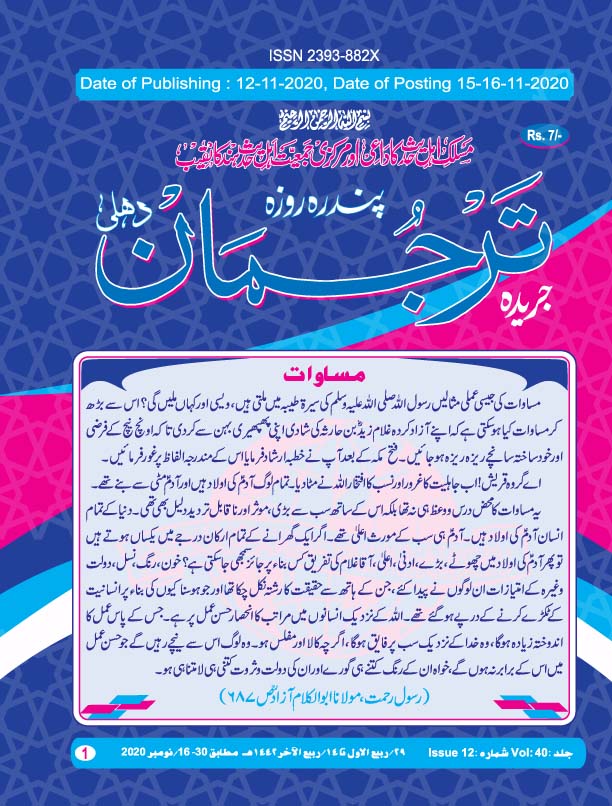 ISSN 2393-882X
Date of Publishing : 12-11-2020, Date of Posting 15-16-11-2020
بسم اللہ الرحمن الرحیم
Rs. 7/-
مسلک اہل حدیث کا داعی اور مرکزی جمعیت اہل حدیث ہند کا نقیب
پندرہ روزہ
جریدہ ترجُمان دہلی
مساوات
مساوات کی جیسی عملی مثالیں رسول اللہ صلی اللہ علیہ وسلم کی سیرۃ طیبہ میں ملتی ہیں، ویسی اور کہاں ملیں گی؟ اس سے بڑھ
کر مساوات کیا ہوسکتی ہے کہ اپنے آزاد کردہ غلام زیدؓ بن حارثہ کی شادی اپنی پھپھیری بہن سے کردی تاکہ اونچ نیچ کے فرضی
اور خود ساختہ سانچے ریزہ ریزہ ہوجائیں۔ فتح مکہ کے بعد آپ نے خطبہ ارشاد فرمایا اس کے مندرجہ الفاظ پر غور فرمائیں۔
اے گروہ قریش! اب جاہلیت کا غرور اور نسب کا افتخار اللہ نے مٹادیا۔ تمام لوگ آدمؑ کی اولاد ہیں اور آدمؑ مٹی سے بنے تھے۔
یہ مساوات کا محض درس و وعظ ہی نہ تھا بلکہ اس کے ساتھ سب سے بڑی، موثر اور ناقابل تردید دلیل بھی تھی۔ دنیا کے تمام
انسان آدمؑ کی اولاد ہیں۔ آدمؑ ہی سب کے مورث اعلیٰ تھے۔ اگر ایک گھرانے کے تمام ارکان درجے میں یکساں ہوتے ہیں
تو پھر آدمؑ کی اولاد میں چھوٹے، بڑے، ادنیٰ، اعلیٰ، آقا غلام کی تفریق کس بناء پر جائز سمجھی جاسکتی ہے؟ خون، رنگ، نسل، دولت
وغیرہ کے امتیازات ان لوگوں نے پیدا کئے، جن کے ہاتھ سے حقیقت کا رشتہ نکل چکا تھا اور جو ہوسناکیوں کی بناء پر انسانیت
کے ٹکڑے کرنے کے درپے ہوگئے تھے۔ اللہ کے نزدیک انسانوں میں مراتب کا انحصار حسن عمل پر ہے۔ جس کے پاس عمل کا
اندوختہ زیادہ ہوگا، وہ خدا کے نزدیک سب پر فایق ہوگا، اگرچہ کالا اور مفلس ہو۔ وہ لوگ اس سے نیچے رہیں گے جو حسن عمل
میں اس کے برابر نہ ہوں گے، خواہ ان کے رنگ کتنے ہی گورے اور ان کی دولت و ثروت کتنی ہی لامتناہی ہو۔
(رسول رحمت، مولانا ابوالکلام آزاد ص ۶۸۷)
جلد :Vol: 40 شمارہ :Issue 12 ۲۹/ ربیع الاول تا ۱۴/ ربیع الآخر ۱۴۴۲ھ مطابق 30-16/ نومبر 2020 1